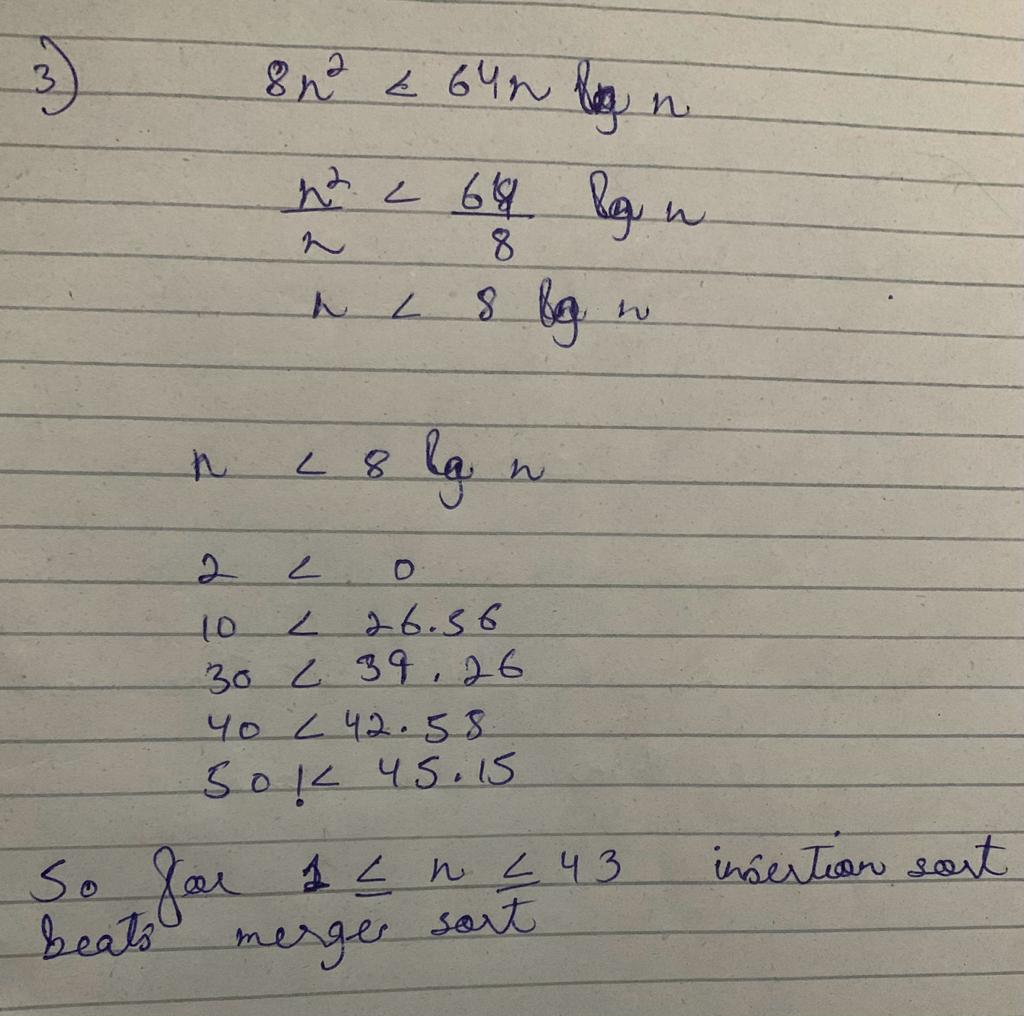 3) 8n² < 64n lg n
n² / n < 64 / 8 lg n
n < 8 lg n
n < 8 lg n
2 < 0
10 < 26.56
30 < 39.26
40 < 42.58
50 !< 45.15
So for 1 ≤ n ≤ 43 insertion sort
beats merge sort